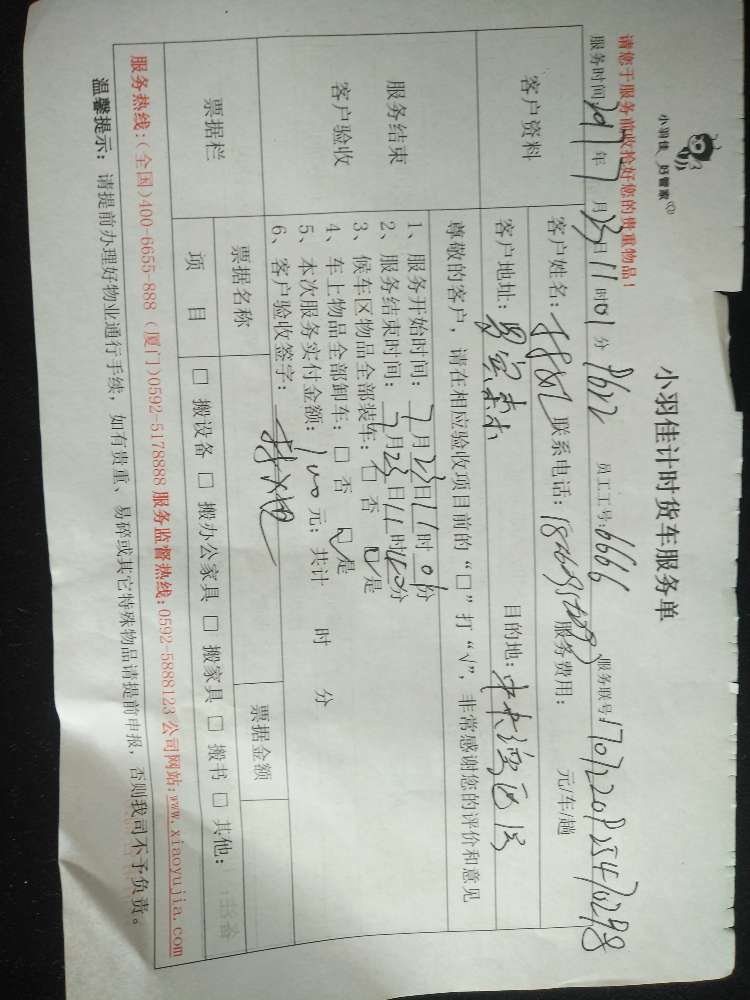 小羽佳 好管家
小羽佳计时货车服务单
请您于服务前收拾好您的贵重物品!
服务时间 2017年7月23日11时01分 员工工号: 6666 服务联号
客户资料
客户姓名: 联系电话: 服务费用: 元/车/趟
客户地址: 目的地: 中央湾区
服务结束
客户验收
尊敬的客户,请在相应验收项目前的“□”打“√”,非常感谢您的评价和意见
1、服务开始时间: 7月23日11时01分
2、服务结束时间: 7月23日11时40分
3、候车区物品全部装车: □ 否 ☑ 是
4、车上物品全部卸车: □ 否 ☑ 是
5、本次服务实付金额: 100元; 共计 时 分
6、客户验收签字:
票据栏
票据名称 票据金额
项 目 □ 搬设备 □ 搬办公家具 □ 搬家具 □ 搬书 □ 其他:
服务热线:(全国)400-6655-888 (厦门)0592-5178888 服务监督热线:0592-5888123 公司网站:www.xiaoyujia.com
温馨提示: 请提前办理好物业通行手续,如有贵重、易碎或其它特殊物品请提前申报,否则我司不予负责。